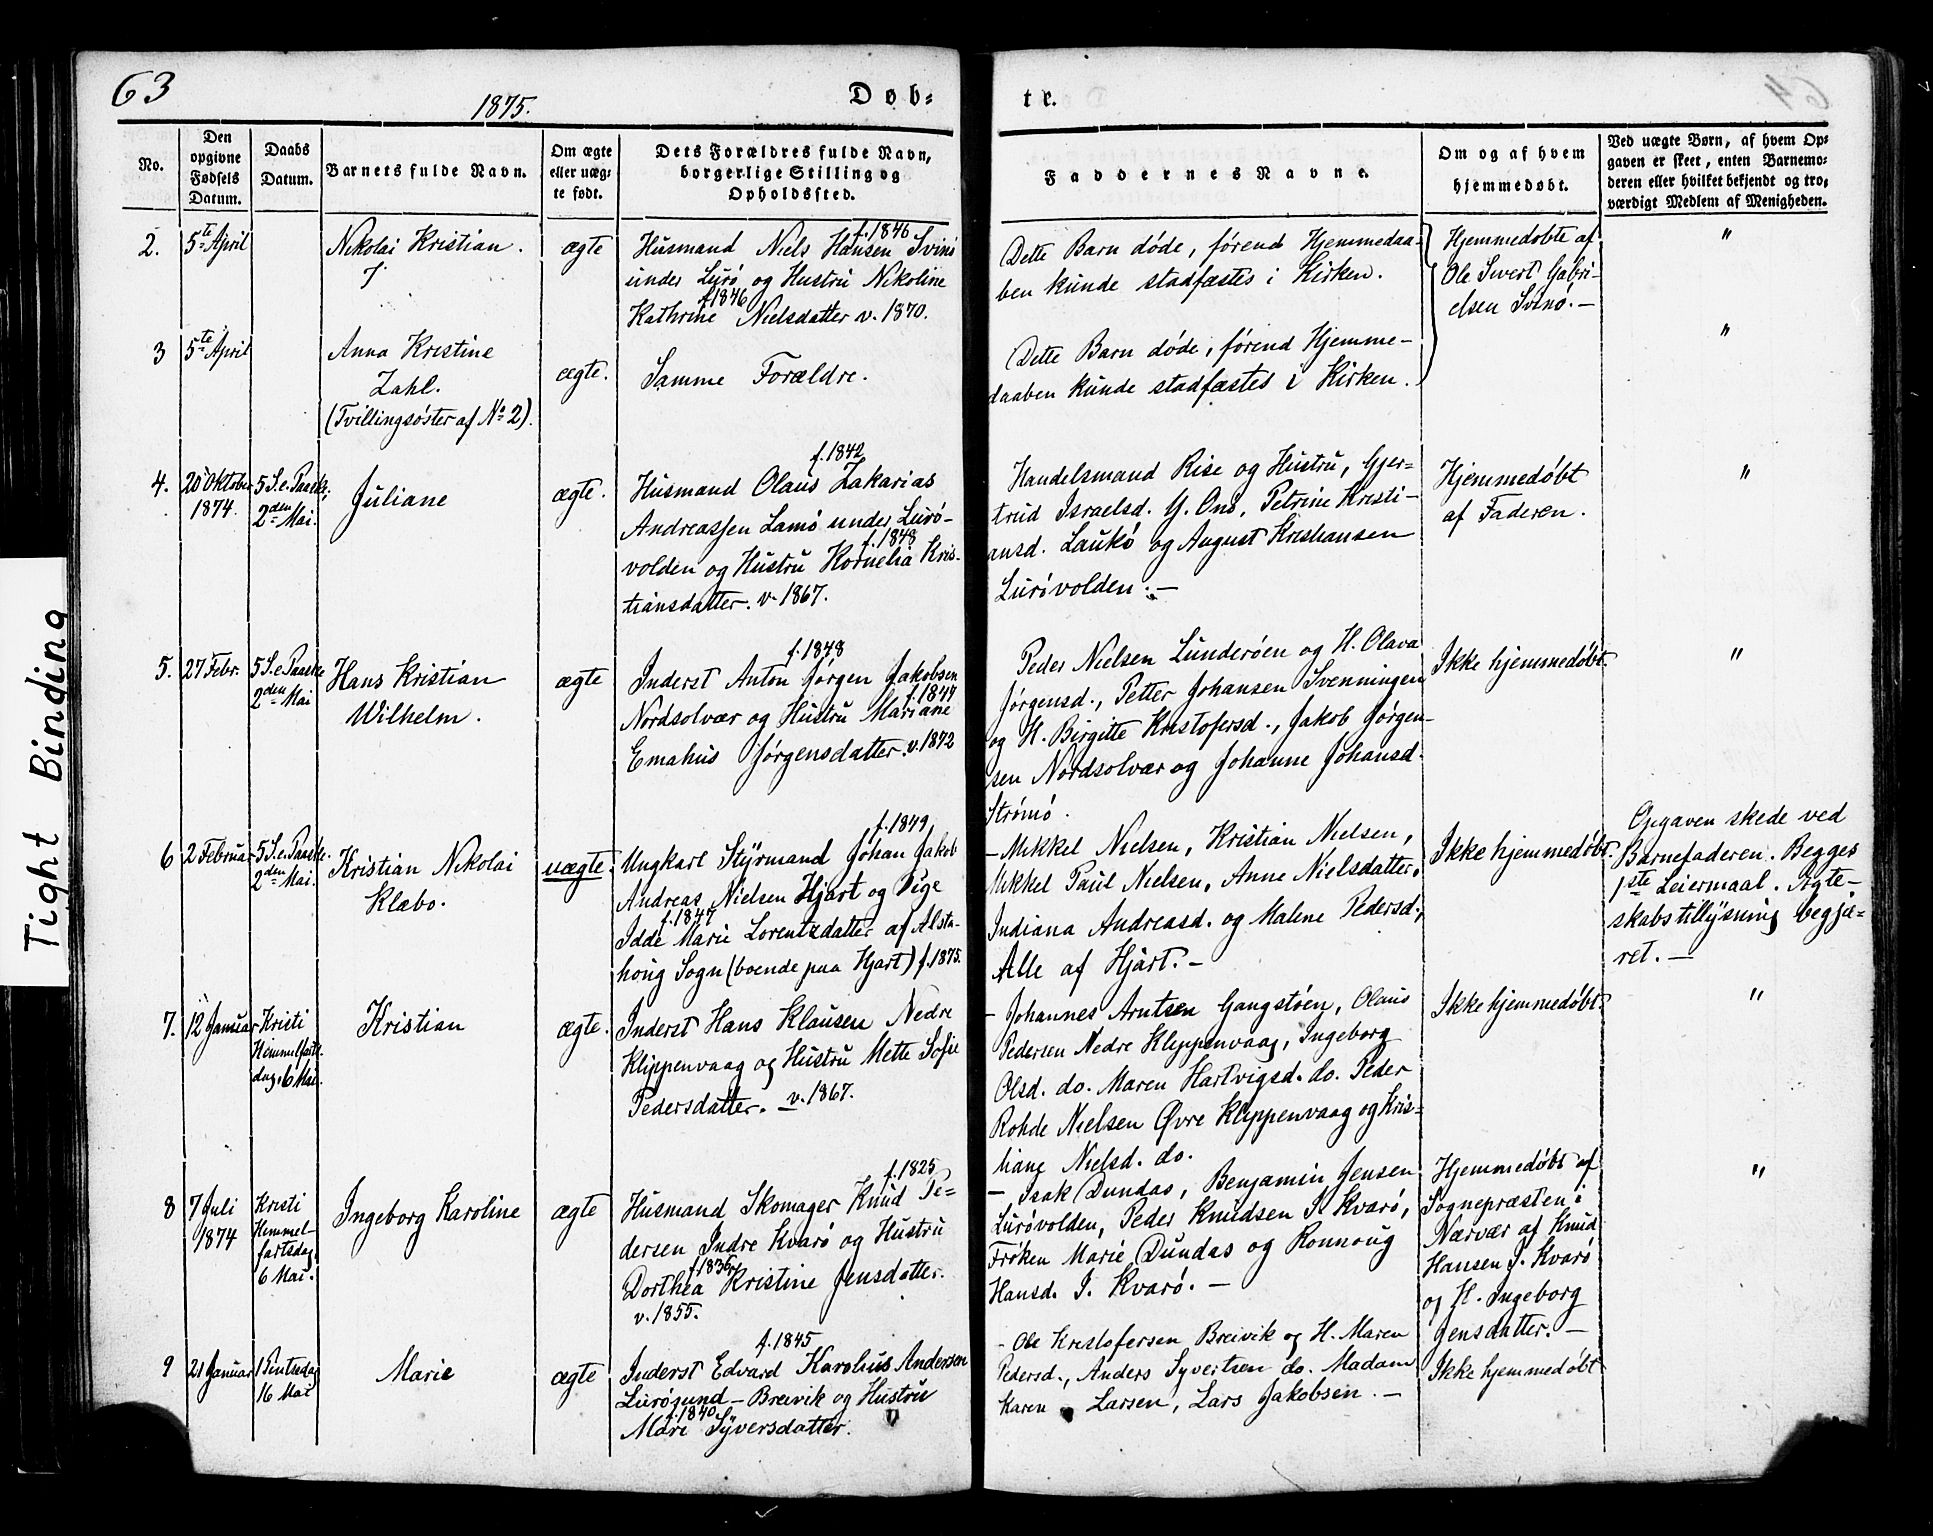 63
1875.
Døb=
te.
64
No.
Den opgivne Fødsels Datum.
Daabs Datum.
Barnets fulde Navn.
Om ægte eller uæg= te født.
Dets Forældres fulde Navn, borgerlige Stilling og Opholdssted.
Faddernes Navne.
Om og af hvem hjemmedøbt.
Ved uægte Børn, af hvem Op= gaven er skeet, enten Barnemo= deren eller hvilket bekjendt og tro= værdigt Medlem af Menigheden.
2.
5te April
Nikolai Kristian.
ægte
f. 1846
Husmand Niels Hansen Svinø
under Lurø og Hustru Nikoline
f. 1846
Kathrine Nielsdatter v. 1870.
Dette Barn døde, førend Hjemmedaa-
ben kunde stadfæstes i Kirken.
Hjemmedøbte af
Ole Sivert Gabri-
elsen Svinø. -
"
3
5te April
Anna Kristine
Zahl.
(Tvillingsøster af No 2).
ægte.
Samme Forældre.
Dette Barn døde, førend Hjemme-
daaben kunde stadfæstes i Kirken.
"
4.
20 Oktober
1874.
5 S. e. Paaske.
2den Mai.
Juliane
ægte.
f. 1842
Husmand Olaus Zakarias
Andreassen Lamø under Lurø-
f. 1848
volden og Hustru Kornelia Kris-
tiansdatter. v. 1867.
Handelsmand Rise og Hustru, Gjer-
trud Israelsd. Y. Ons, Petrine Kristi-
ansd. Laukø og August Kristiansen
Lurøvolden. -
Hjemmedøbt
af Faderen.
"
5.
27 Febr.
5 S. e. Paaske
2den Mai
Hans Kristian
Wilhelm.
ægte
f. 1848
Inderst Anton Jørgen Jakobsen
f. 1847
Nordsolvær og Hustru Mariane
Emahus Jørgensdatter. v. 1872
Peder Nielsen Lunderøen og H. Olava
Jørgensd., Petter Johansen Svenningen
og H. Birgitte Kristofersd., Jakob Jørgen-
sen Nordsolvær og Johanne Johansd.
Strømø.
Ikke hjemmedøbt.
"
6
2 Februar
5 S. e. Paaske.
2den Mai.
Kristian Nikolai
Klæbo.
uægte.
f. 1849
Ungkarl Styrmand Johan Jakob
Andreas Nielsen Hjart og Pige
f. 1847
Idde Marie Lorentzdatter af Alsta-
houg Sogn (boende paa Hjart) f. 1875.
- Mikkel Nielsen, Kristian Nielsen,
Mikkel Paul Nielsen, Anne Nielsdatter,
Indiana Andreasd. og Malene Pedersd.,
Alle af Hjart. -
Ikke hjemmedøbt.
Opgaven skede ved
Barnefaderen. Begges
1ste Leiermaal. Ægte-
skabstillysning begjæ=
ret. -
7.
12 Januar
Kristi
Himmelfarts.
dag. 6 Mai.
Kristian
ægte.
Inderst Hans Klausen Nedre
Klippenvaag og Hustru Mette Sofie
Pedersdatter. v. 1867.
- Johannes Arntsen Gangstøen, Olaus
Pedersen Nedre Klippenvaag, Ingeborg
Olsd. do. Maren Hartvigsd. do. Peder
Rohde Nielsen Øvre Klippenvaag og Kris=
tiane Nielsd. do.
Ikke hjemmedøbt.
"
8
7 Juli
1874
Kristi
Himmel-
fartsdag
6 Mai.
Ingeborg Karoline
ægte
f. 1825
Husmand Skomager Knud Pe=
dersen Indre Kvarø og Hustru
Dorthea Kristine Jensdatter.
v. 1855.
- Isak Dundas, Benjamin Jensen
Lurøvolden, Peder Knudsen I. Kvarø,
Frøken Marie Dundas og Ronnoug
Hansd. I. Kvarø. -
Hjemmedøbt af
Sognepræsten i
Nærvær af Knud
Hansen I. Kvarø
og H. Ingeborg
Jensdatter. -
"
9
21 Januar
1 Pintsedag
16 Mai
Marie
ægte
f. 1845
Inderst Edvard Karolius Andersen
Lurøsund - Breivik og Hustru
f. 1840
Mari Syversdatter.
- Ole Kristofersen Breivik og H. Maren
Pedersd., Anders Syvertsen do. Madam
Karen Larsen, Lars Jakobsen. -
Ikke hjemmedøbt
Tight Binding